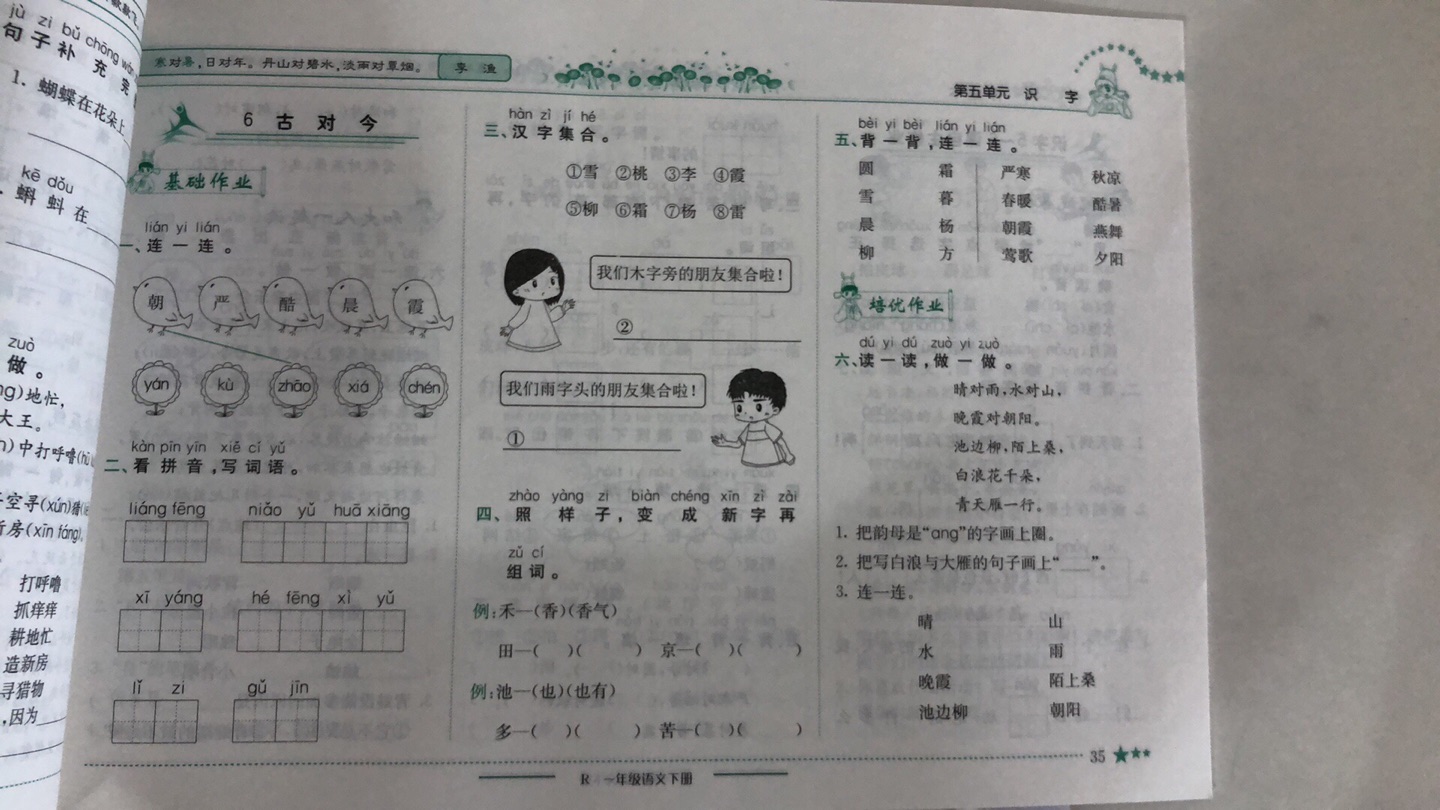 jù zi bǔ chōng
句子补充完
1. 蝴蝶在花朵上
kē dǒu
蝌蚪在
zuò
做。
地忙，
大王。
中打呼噜
空寻(xún)猎
房(xīn fáng)，
打呼噜
抓痒痒
耕地忙
造新房
寻猎物
，因为
寒对暑，日对年。丹山对碧水，淡雨对覃烟。 李渔
第五单元 识字
6 古对今
基础作业
lián yi lián
一、连一连。
朝 严 酷 晨 霞
yán kù zhāo xiá chén
kàn pīn yīn xiě cí yǔ
二、看拼音，写词语。
liáng fēng niǎo yǔ huā xiāng
xī yáng hé fēng xì yǔ
lǐ zi gǔ jīn
hàn zì jí hé
三、汉字集合。
①雪 ②桃 ③李 ④霞
⑤柳 ⑥霜 ⑦杨 ⑧雷
我们木字旁的朋友集合啦！
②
我们雨字头的朋友集合啦！
①
zhào yàng zi biàn chéng xīn zì zài
四、照样子，变成新字再
zǔ cí
组词。
例：禾—(香)(香气)
田—( )( ) 京—( )( )
例：池—(也)(也有)
多—( )( ) 苦—( )( )
bèi yi bèi lián yi lián
五、背一背，连一连。
圆 霜 严寒 秋凉
雪 暮 春暖 酷暑
晨 杨 朝霞 燕舞
柳 方 莺歌 夕阳
培优作业
dú yi dú zuò yi zuò
六、读一读，做一做。
晴对雨，水对山，
晚霞对朝阳。
池边柳，陌上桑，
白浪花千朵，
青天雁一行。
1. 把韵母是“ang”的字画上圈。
2. 把写白浪与大雁的句子画上“___”。
3. 连一连。
晴 山
水 雨
晚霞 陌上桑
池边柳 朝阳
35
R 一年级语文下册